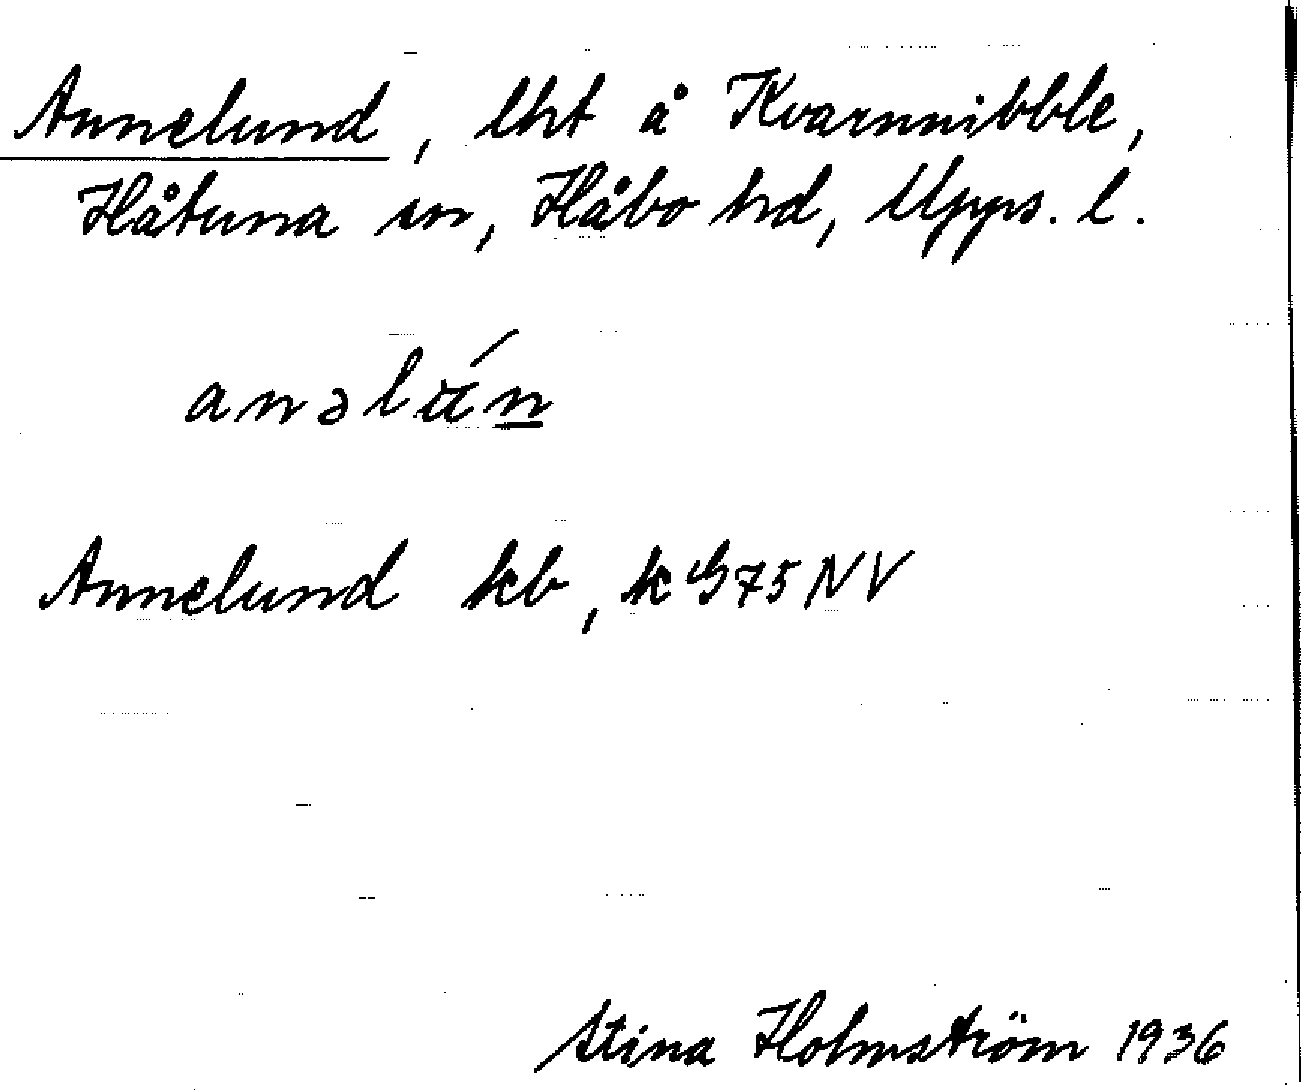 Annelund, lht å Kvarnnibble,
Håtuna sn, Håbo hd, Upps. l.
Annelund kb, k G 75 NV
Stina Holmström 1936